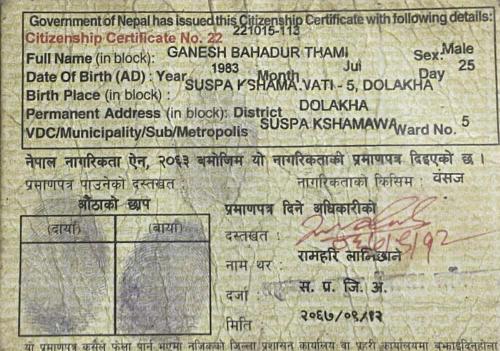 Government of Nepal has issued this Citizenship Certificate with following details:
Citizenship Certificate No. 22 221015-113
Full Name (in block): GANESH BAHADUR THAMI Sex: Male
Date Of Birth (AD) : Year 1983 Month Jul Day 25
Birth Place (in block) : SUSPA KSHAMA.VATI - 5, DOLAKHA
Permanent Address (in block): District DOLAKHA
VDC/Municipality/Sub/Metropolis SUSPA KSHAMAWA Ward No. 5
नेपाल नागरिकता ऐन, २०६३ बमोजिम यो नागरिकताको प्रमाणपत्र दिइएको छ ।
प्रमाणपत्र पाउनेको दस्तखत : नागरिकताको किसिम : वंसज
औंठाको छाप प्रमाणपत्र दिने अधिकारीको
(दायाँ) (बायाँ) दस्तखत :
नाम थर : रामहरि लामिछाने
दर्जा : स. प्र. जि. अ.
मिति : २०६७/०९/१२
यो प्रमाणपत्र कसैले फेला पार्न भएमा नजिकको जिल्ला प्रशासन कार्यालय वा प्रहरी कार्यालयमा बुझाईदिनुहोला